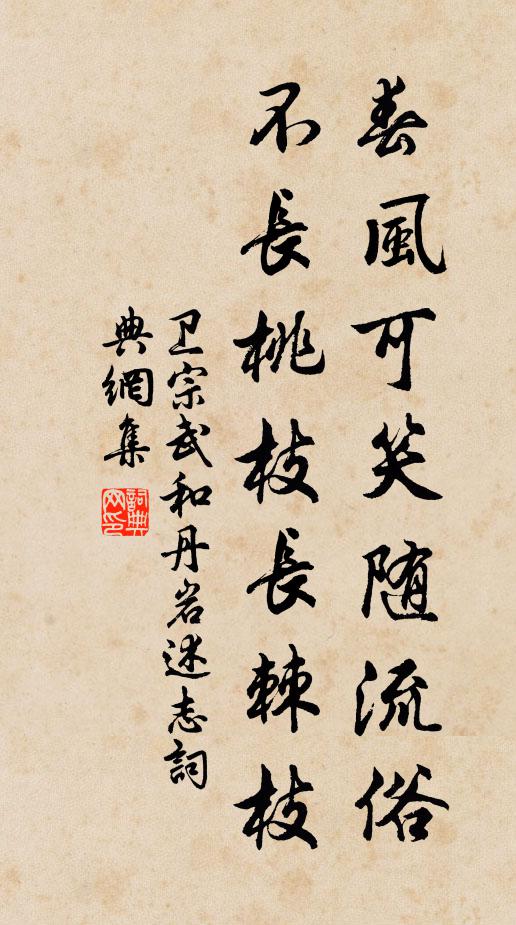 春風可笑随流俗
不長桃枝長棘枝
卫宗武和丹岩述志詞
典網集
詞典網印